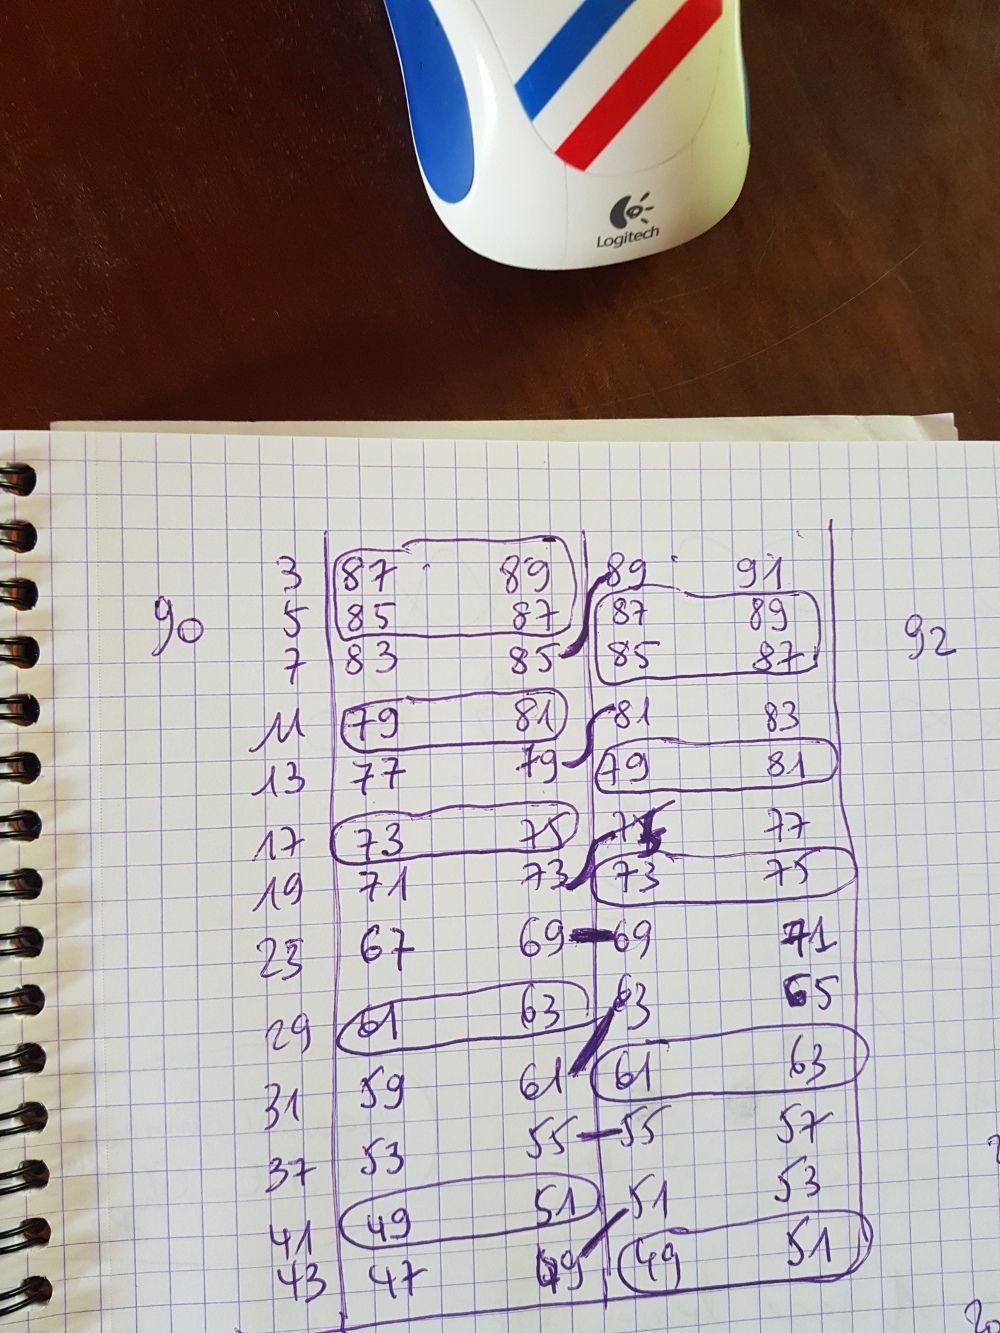 Logitech
3 87 89 89 91
5 85 87 87 89
90
7 83 85 85 87
92
11 79 81 81 83
13 77 79 79 81
17 73 75 75 77
19 71 73 73 75
23 67 69 69 71
29 61 63 63 65
31 59 61 61 63
37 53 55 55 57
41 49 51 51 53
43 47 49 49 51